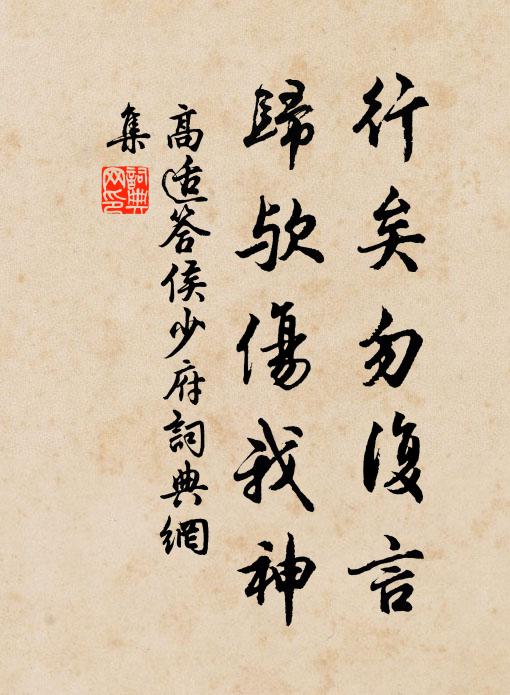 行矣勿復言
歸欤傷我神
高适答侯少府詞典網
集
詞典
网印